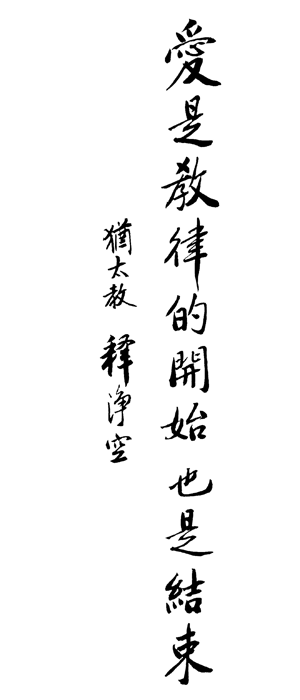 愛是教律的開始也是結束
猶太教 釋淨空